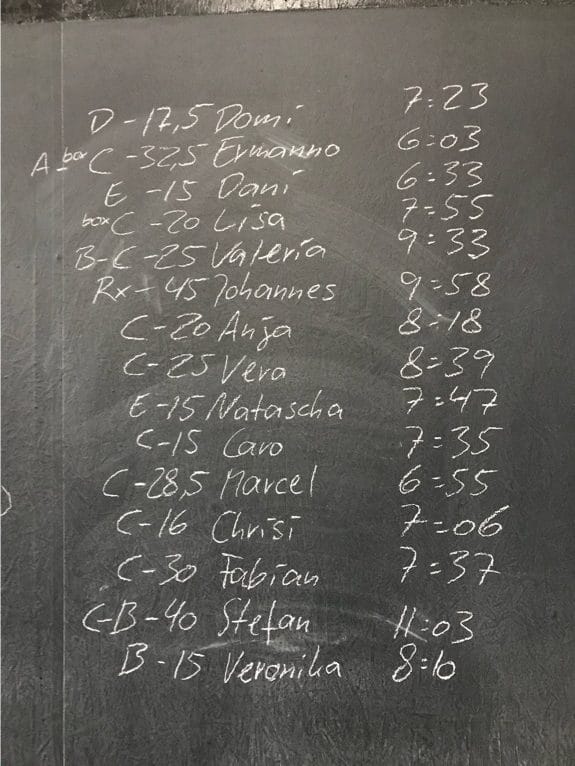 D-17,5 Domi 7:23
A-box C-32,5 Ermanno 6:03
E-15 Dani 6:33
box C-20 Lisa 7:55
B-C-25 Valeria 9:33
Rx-45 Johannes 9:58
C-20 Anja 8:18
C-25 Vera 8:39
E-15 Natascha 7:47
C-15 Caro 7:35
C-28,5 Marcel 6:55
C-16 Chrisi 7:06
C-30 Fabian 7:37
C-B-40 Stefan 11:03
B-15 Veronika 8:10